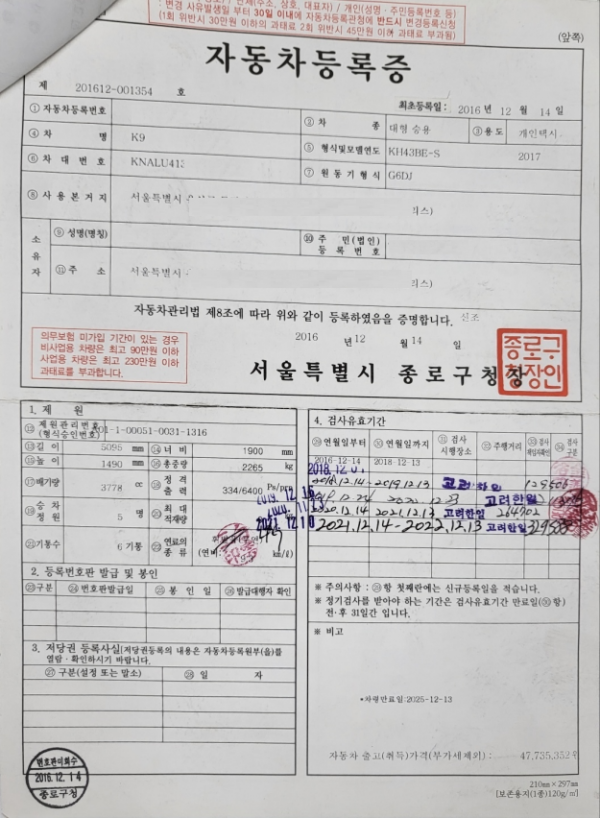 : 변경 사유발생일 부터 30일 이내에 자동차등록관청에 반드시 변경등록신청
(1회 위반시 30만원 이하의 과태료 2회 위반시 45만원 이하 과태료 부과됨)
(앞쪽)
자동차등록증
제 201612-001354 호
최초등록일: 2016 년 12 월 14 일
① 자동차등록번호
② 차 종 대형 승용
③ 용도 개인택시
④ 차 명 K9
⑤ 형식및모델연도 KH43BE-S 2017
⑥ 차 대 번 호 KNALU413
⑦ 원 동 기 형 식 G6DJ
⑧ 사 용 본 거 지 서울특별시
소유자
⑨ 성명(명칭)
⑩ 주 민(법인) 등 록 번 호
⑪ 주 소 서울특별시
자동차관리법 제8조에 따라 위와 같이 등록하였음을 증명합니다. 신조
2016 년 12 월 14 일
의무보험 미가입 기간이 있는 경우
비사업용 차량은 최고 90만원 이하
사업용 차량은 최고 230만원 이하
과태료를 부과합니다.
서울특별시 종로구청장
종로구
청장인
1. 제 원
⑫ 제원관리번호 (형식승인번호) A01-1-00051-0031-1316
⑬ 길 이 5095 mm ⑭ 너 비 1900 mm
⑮ 높 이 1490 mm ⑯ 총중량 2265 kg
⑰ 배기량 3778 cc ⑱ 정 격 출 력 334/6400 Ps/rpm
⑲ 승 차 정 원 5 명 ⑳ 최 대 적재량
㉑ 기통수 6 기통 ㉒ 연료의 종 류 (연비: km/ℓ)
2. 등록번호판 발급 및 봉인
㉓ 구분 ㉔ 번호판발급일 ㉕ 봉 인 일 ㉖ 발급대행자 확인
3. 저당권 등록사실(저당권등록의 내용은 자동차등록원부(을)를
열람·확인하시기 바랍니다.
㉗ 구분(설정 또는 말소) ㉘ 일 자
번호판미회수
2016. 12. 14
종로구청
4. 검사유효기간
㉙ 연월일부터 ㉚ 연월일까지 ㉛ 검사 시행장소 ㉜ 주행거리 ㉞ 검사 구분
2016-12-14 2018-12-13
2018.12.14-2019.12.13
2020.12.14 2021.12.13 고려한일 264702
2021.12.14-2022.12.13 고려한일
2021. 12. 10
※ 주의사항 : ㉙항 첫째란에는 신규등록일을 적습니다.
※ 정기검사를 받아야 하는 기간은 검사유효기간 만료일(㉚항)
전·후 31일간 입니다.
※ 비고
*차령만료일:2025-12-13
자동차 출고(취득)가격(부가세제외) : 47,735,352원
210㎜×297㎜
[보존용지(1종)120g/㎡]